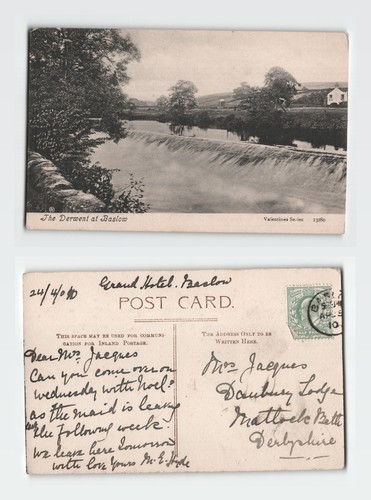 The Derwent at Baslow
Valentines Series
Grand Hotel. Baslow
24/4/
POST CARD.
THIS SPACE MAY BE USED FOR COMMUNI-
CATION FOR INLAND POSTAGE.
THE ADDRESS ONLY TO BE
WRITTEN HERE.
Dear Mrs. Jacques
Can you come on
Wednesday with Noel?
as the maid is leaving
the following week.
We leave here tomorrow
with love Yours M. E. Hyde
Mrs Jacques
Danbury Lodge
Matlock Bath
Derbyshire
10